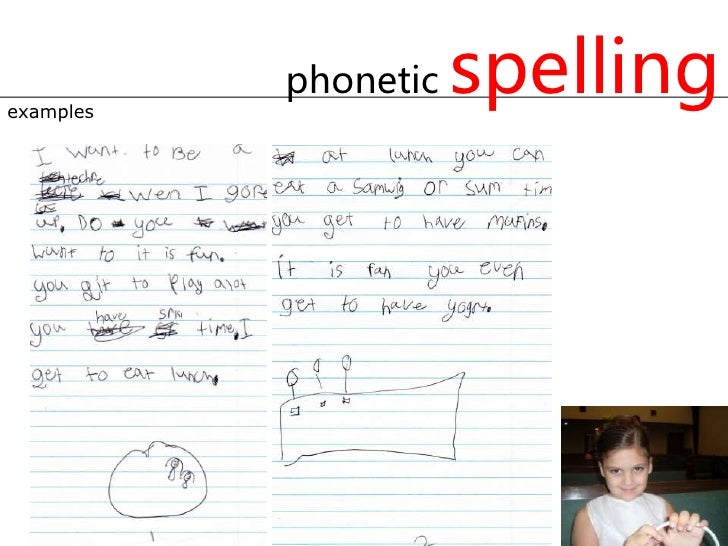 phonetic spelling
examples
I want. to Be a
techre wen I gore
up. DO you
want to it is fun.
you git to Play alot
you have time. I
get to eat lunch.
at lunch you can
eat a samwig or sum tim
you get to have mufins.
it is fan you even
get to have yogrt.